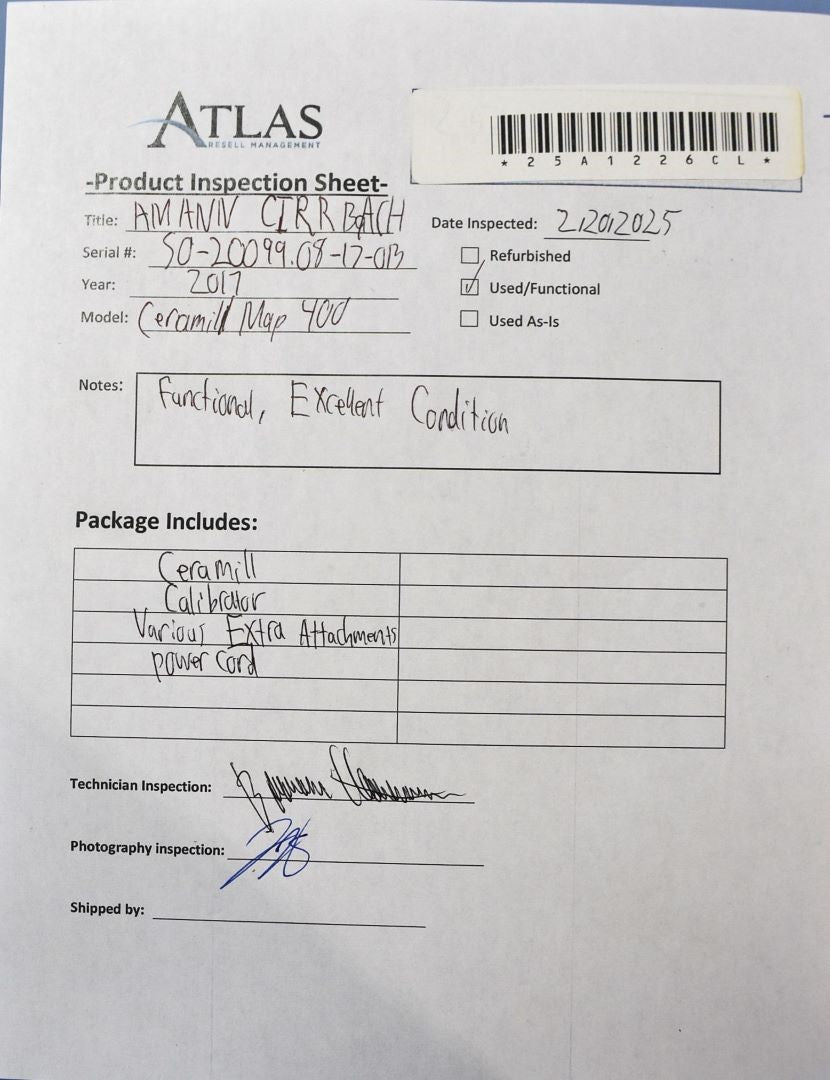 ATLAS
RESELL MANAGEMENT
* 2 5 A 1 2 2 6 C L *
-Product Inspection Sheet-
Title: AMANN GIRRBACH
Date Inspected: 2,20,2025
Serial #: SO-20099.08-17-013
Refurbished
Year: 2017
Used/Functional
Model: Ceramill Map 400
Used As-Is
Notes: Functional, Excellent Condition
Package Includes:
Ceramill
Calibrator
Various Extra Attachments
power cord
Technician Inspection:
Photography inspection:
Shipped by: